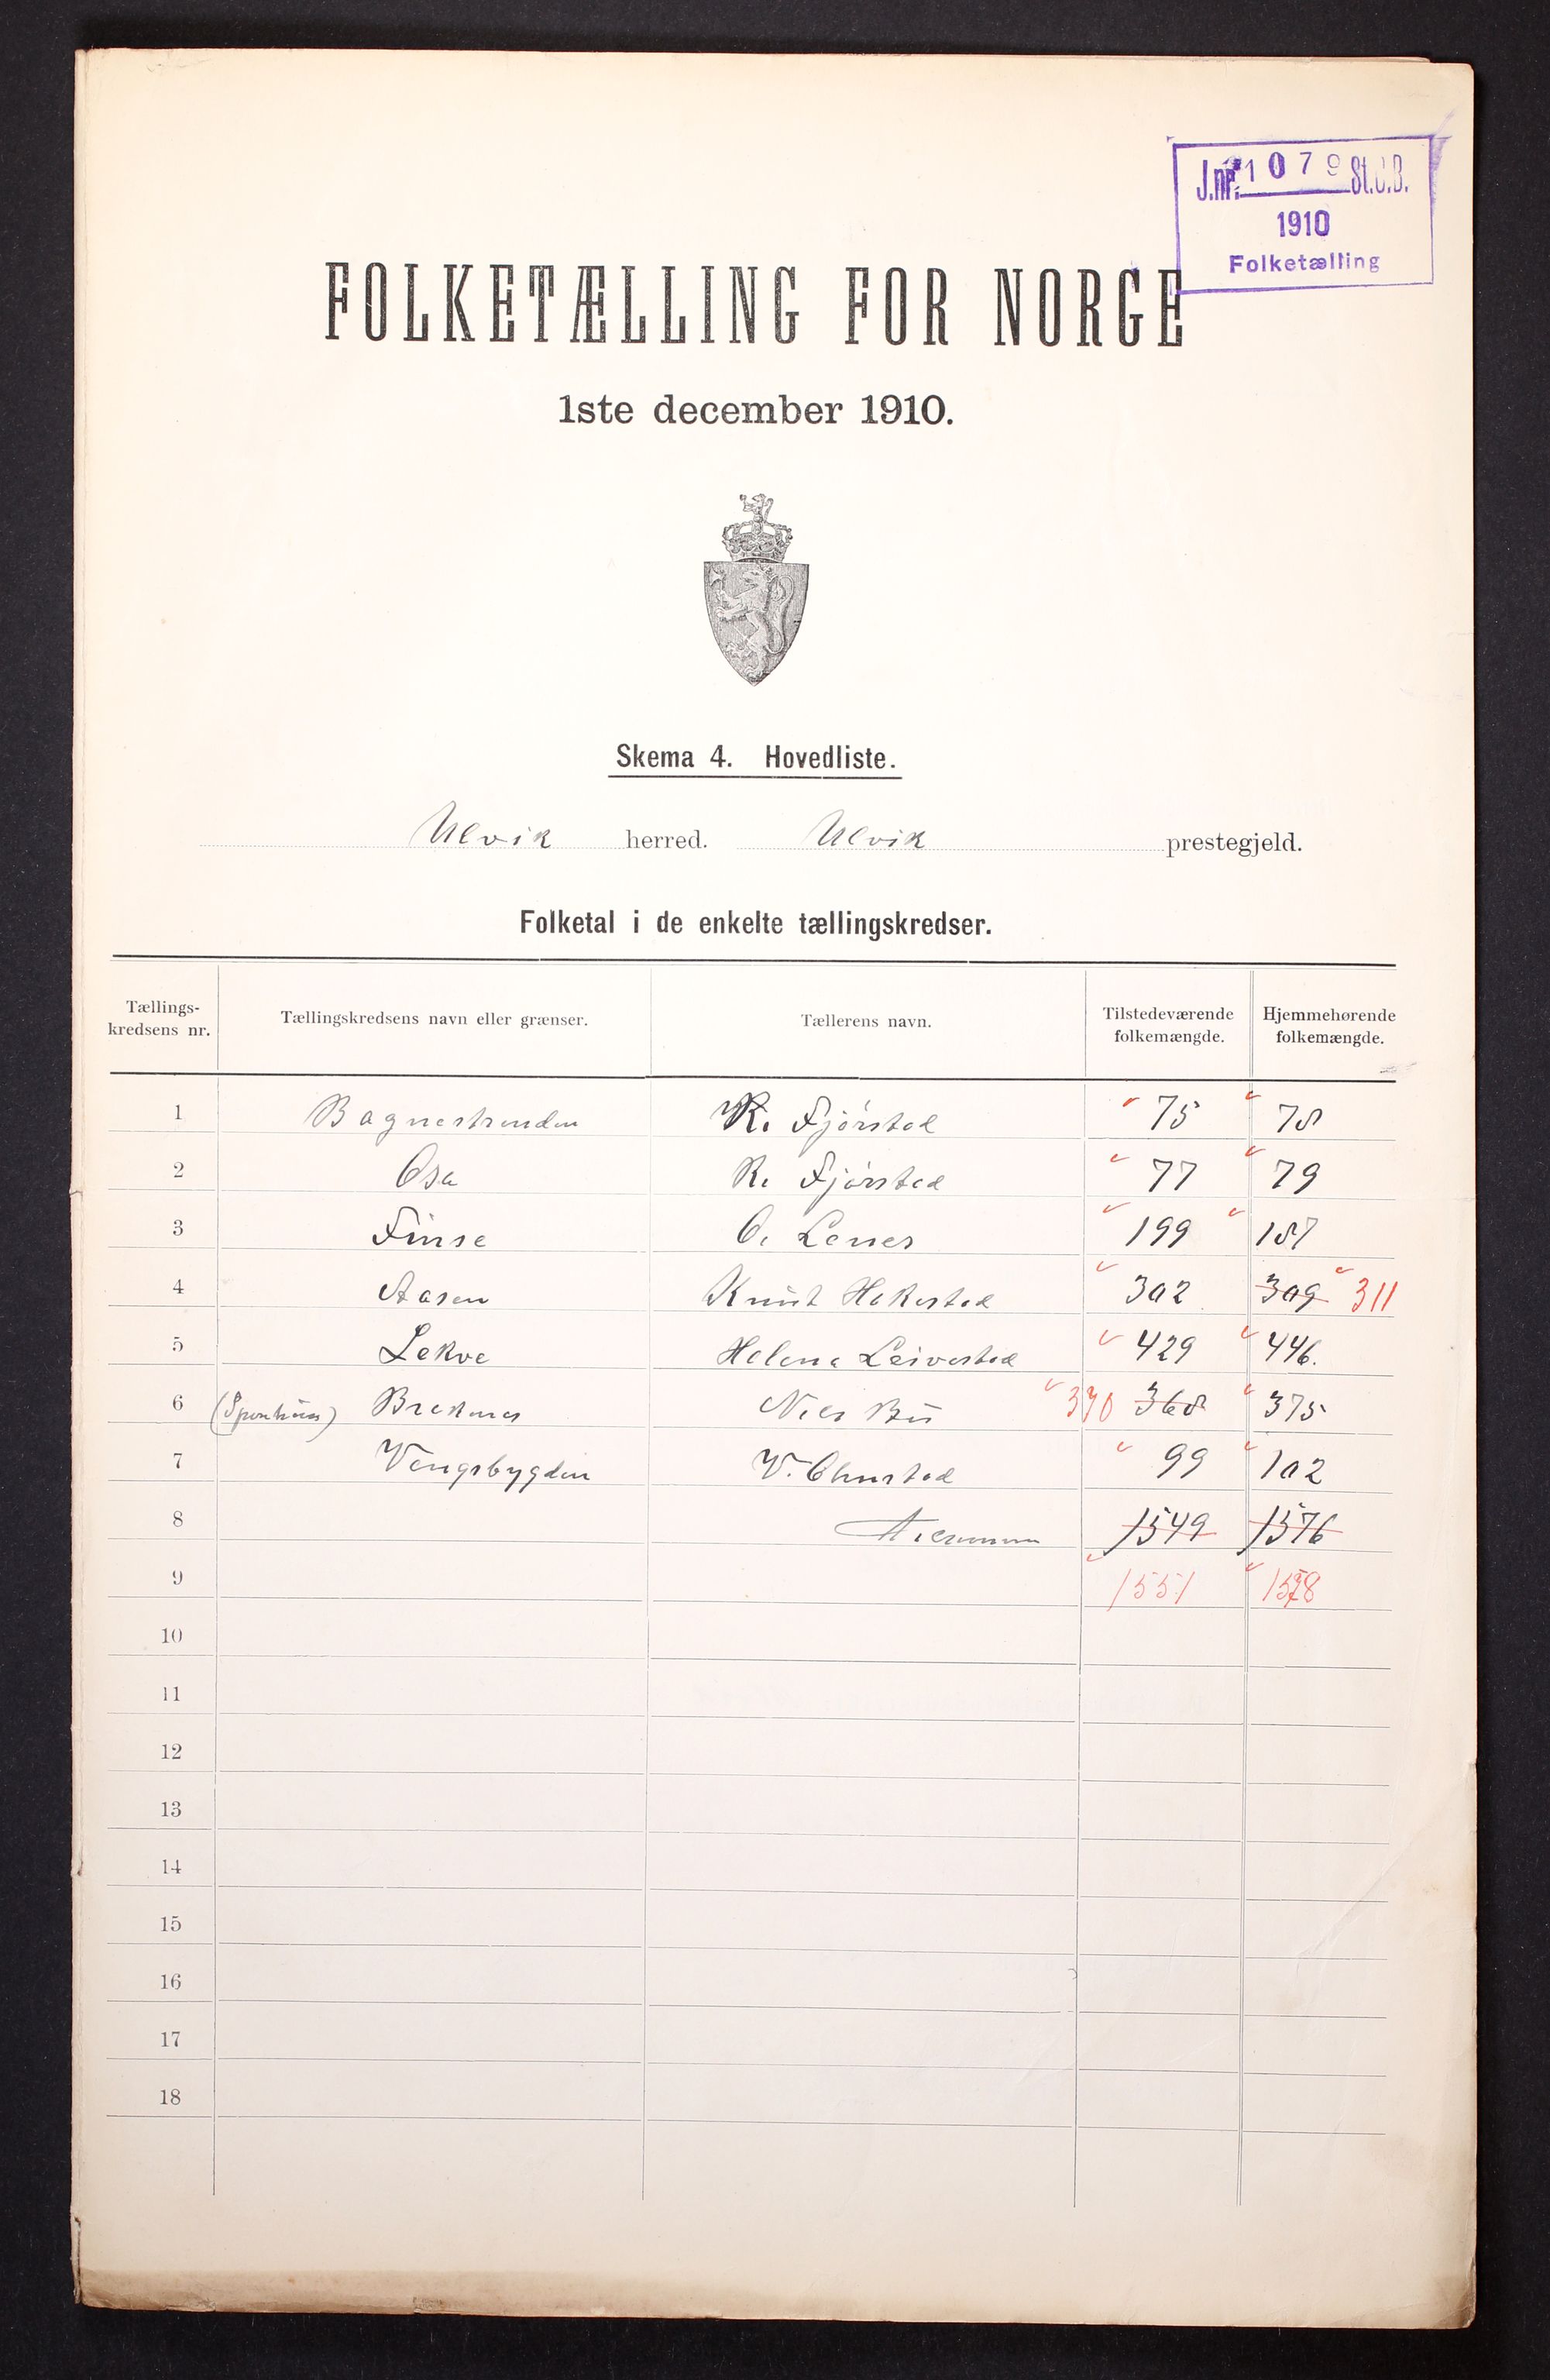 J.nr. 1079 St.C.B.
1910
Folketælling
FOLKETÆLLING FOR NORGE
1ste december 1910.
Skema 4. Hovedliste.
Ulvik herred. Ulvik prestegjeld.
Folketal i de enkelte tællingskredser.
Tællings-kredsens nr. Tællingskredsens navn eller grænser. Tællerens navn. Tilstedeværende folkemængde. Hjemmehørende folkemængde.
1 Bagnestranden R. Fjørstad 75 78
2 Osa R. Fjørstad 77 79
3 Finse O. 199 187
4 Aasen Knut Hakestad 302 309 311
5 Lekve Helena Leivestad 429 446.
6 (Sponheim) Braknes Nils Bu 370 368 375
7 Vangsbygden V. 99 102
8 1549 1576
9 1551 1578
10
11
12
13
14
15
16
17
18